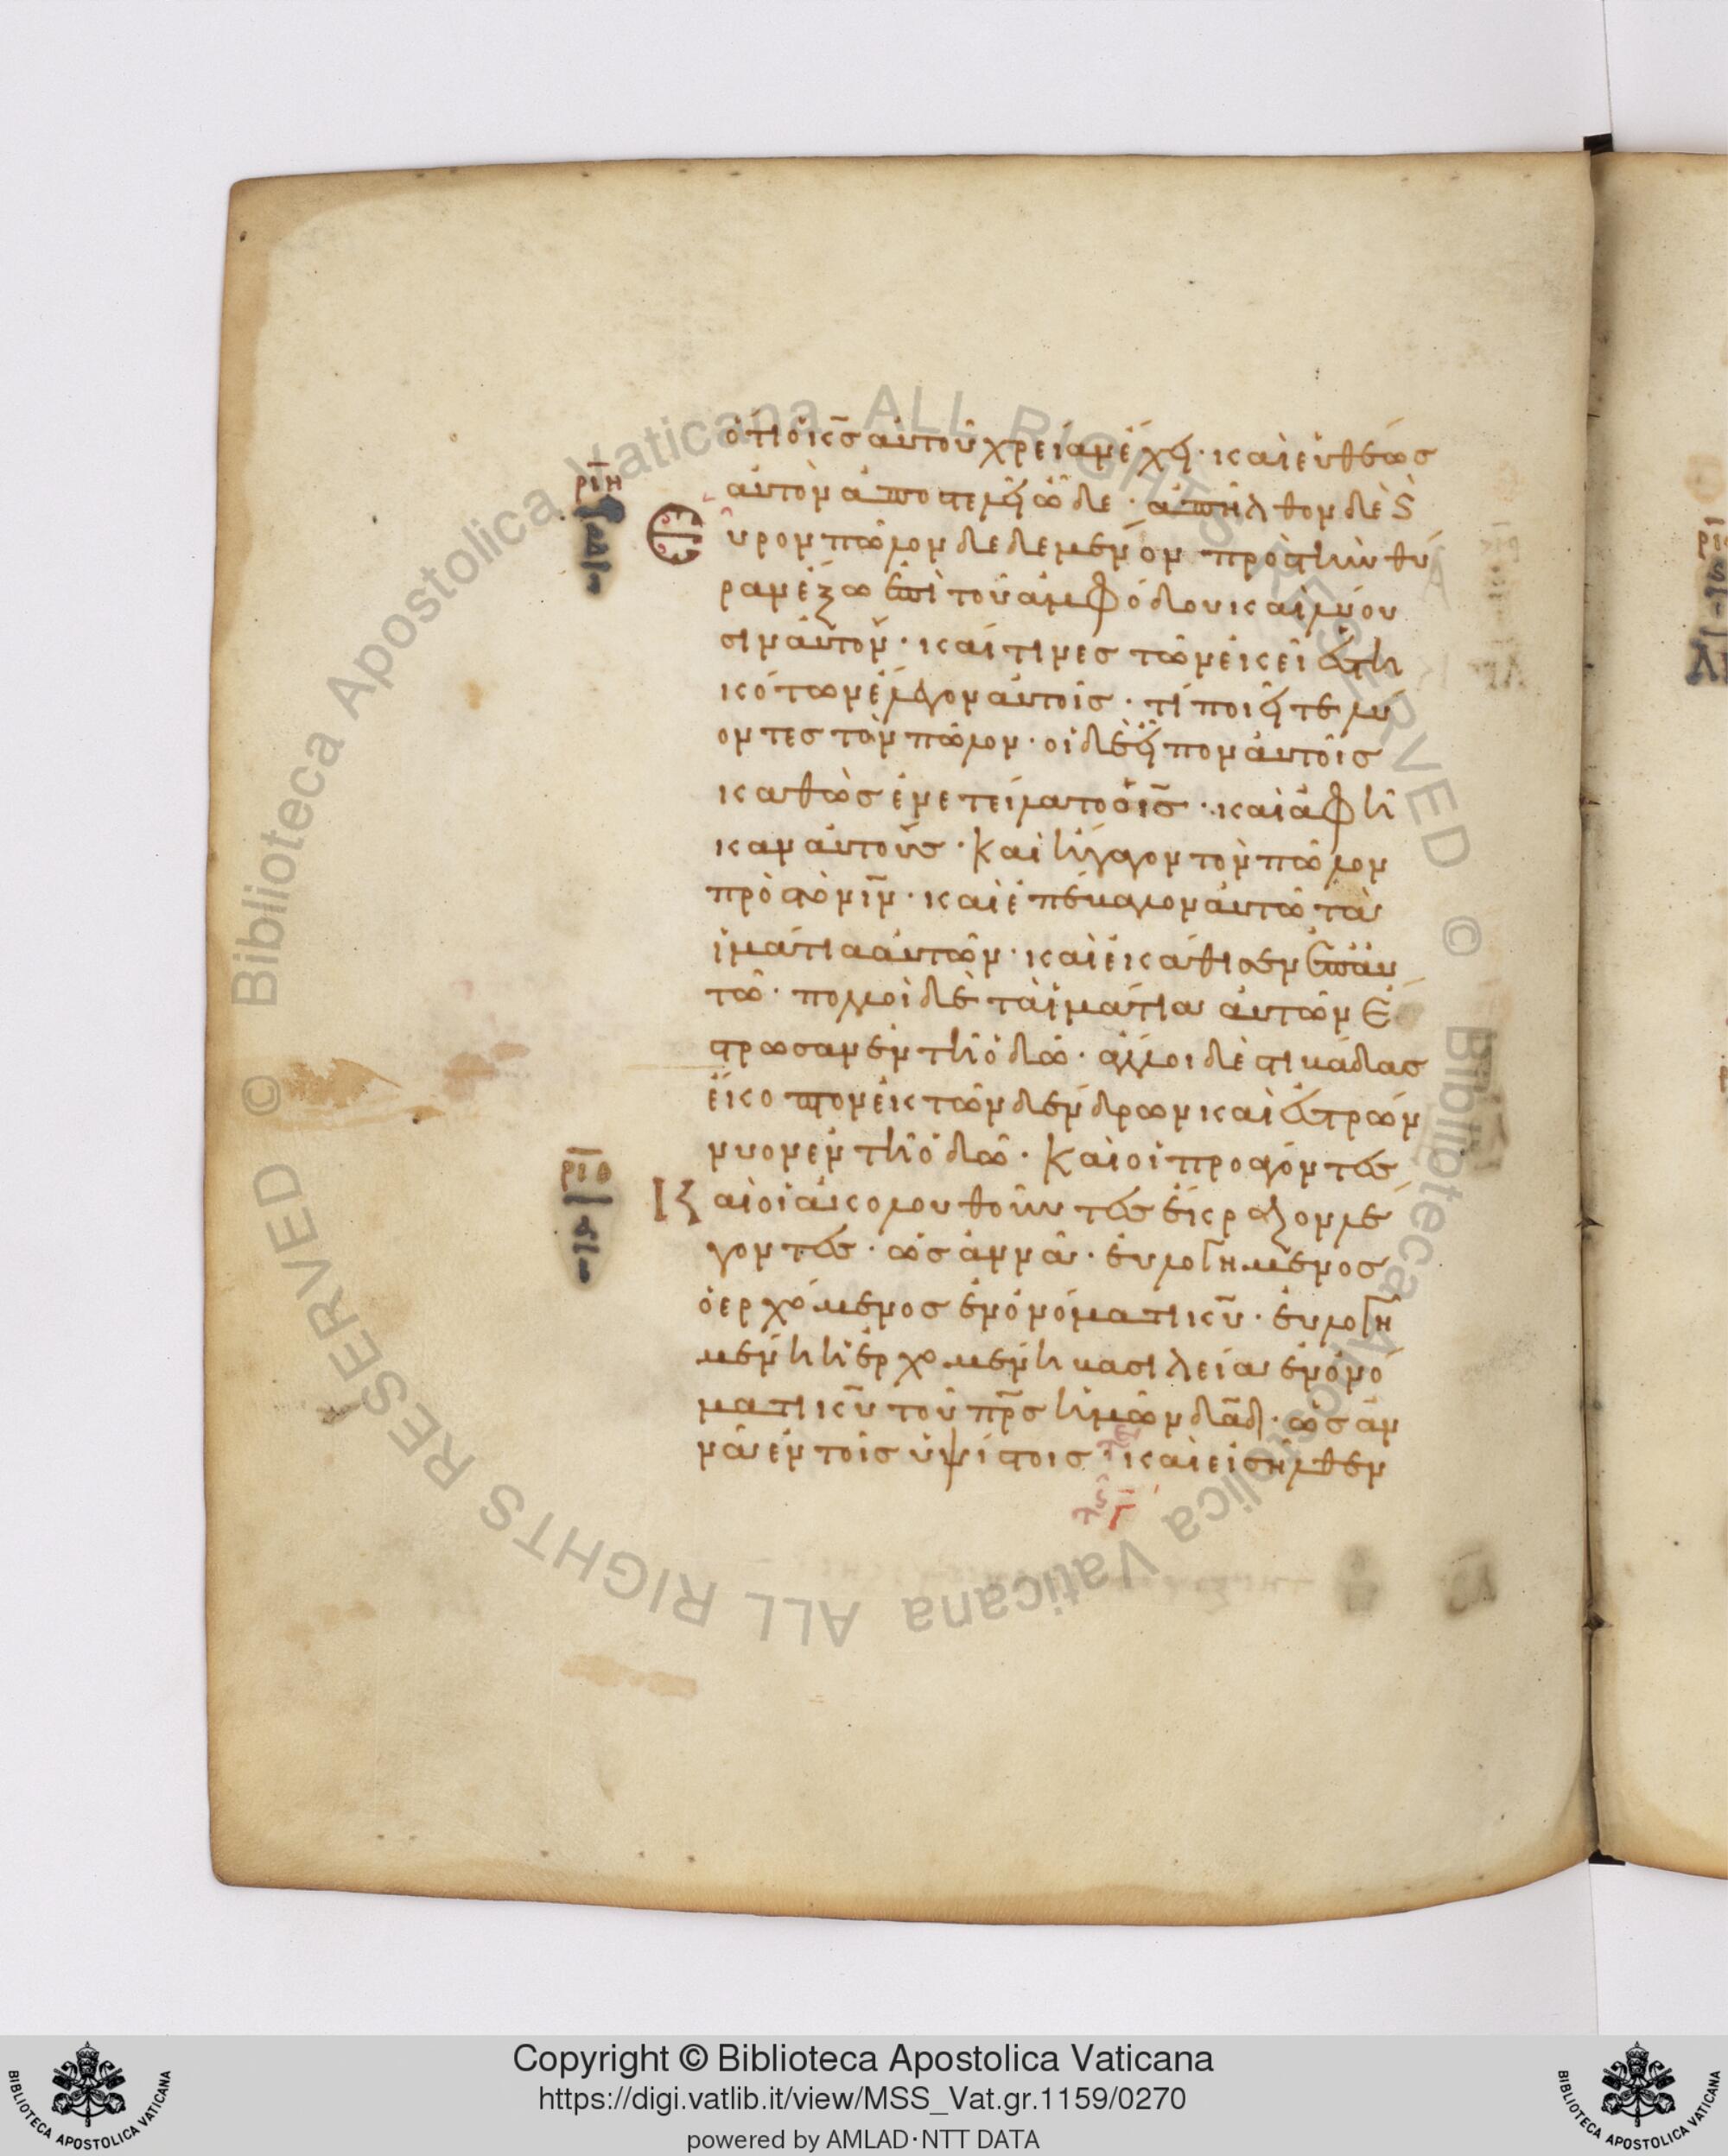 ὅτι ὁ κ̅ς̅ αὐτοῦ χρείαν ἔχει· καὶ εὐθέως
ρ̅ι̅η̅
αὐτὸν ἀποστέλλει ὧδε· ἀπῆλθον δὲ ϗ
Εὗρον πῶλον δεδεμένον πρὸς τὴν θύ
ραν ἔξω ἐπὶ τοῦ ἀμφόδου καὶ λύου
σιν αὐτόν· καί τινες τῶν ἐκεῖ ἑστη
κότων ἔλεγον αὐτοῖς· τί ποιεῖτε λύ
οντες τὸν πῶλον· οἱ δὲ εἶπον αὐτοῖς
καθὼς ἐνετείλατο ὁ ι̅ς̅· καὶ ἀφῆ
καν αὐτούς· Καὶ ἤγαγον τὸν πῶλον
πρὸς τὸν ι̅ν̅· καὶ ἐπέβαλον αὐτῶ τὰ
ἱμάτια αὐτῶν· καὶ ἐκάθισεν ἐπ αὐ
τῶ· πολλοὶ δὲ τὰ ἱμάτια αὐτῶν ἔ
στρωσαν ἐν τῆ ὁδῶ· ἄλλοι δὲ στιβάδας
ἔκοπτον ἐκ τῶν δένδρων καὶ ἐστρών
νυον ἐν τῆ ὁδῶ· Καὶ οἱ προάγοντες
ρ̅ι̅θ̅
Καὶ οἱ ἀκολουθοῦντες ἔκραζον λέ
γοντες· ὡσαννά· εὐλογημένος
ὁ ἐρχόμενος ἐν ὀνόματι κ̅υ̅· εὐλογη
μένη ἡ ἐρχομένη βασιλεία ἐν ὀνό
ματι κ̅υ̅ τοῦ π̅ρ̅ς̅ ἡμῶν δ̅α̅δ̅· ὡσαν
νὰ ἐν τοῖς ὑψίστοις· καὶ εἰσῆλθεν
Copyright © Biblioteca Apostolica Vaticana
https://digi.vatlib.it/view/MSS_Vat.gr.1159/0270
powered by AMLAD·NTT DATA